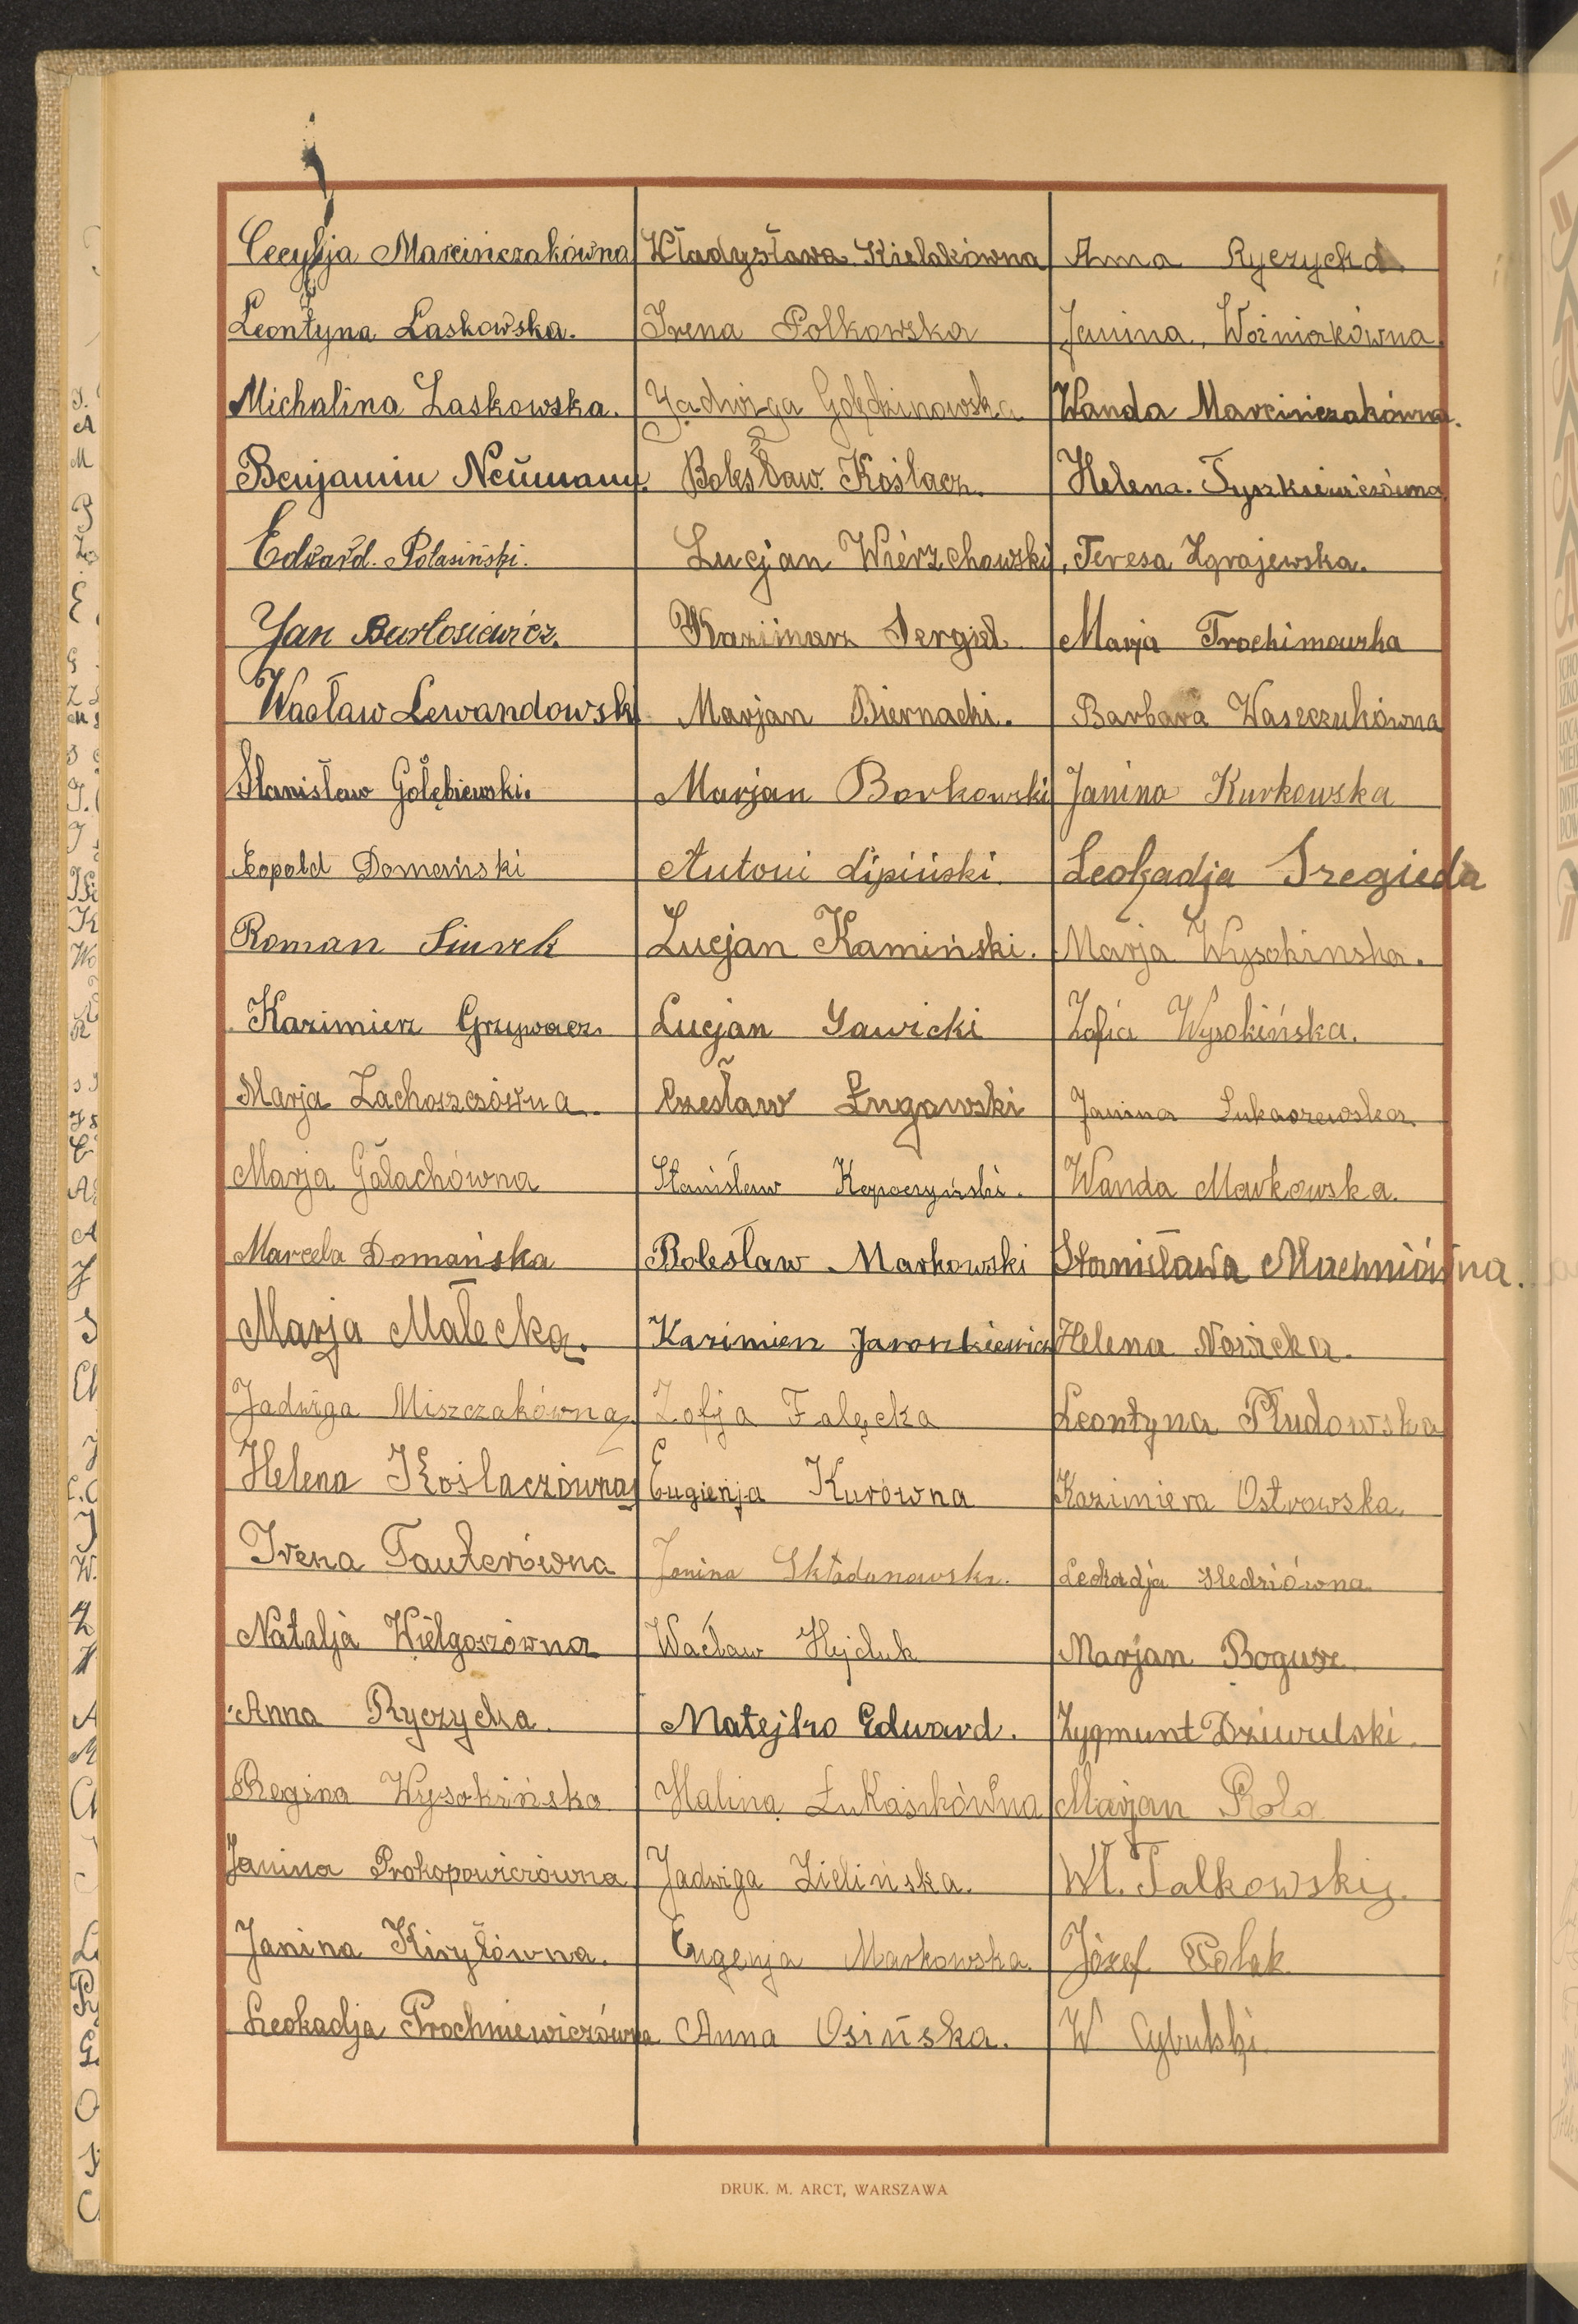 Cecylja Marcińczakówna
Leontyna Laskowska.
Michalina Laskowska.
Benjamin Neumann.
Edward Połasiński.
Jan Bartosiewicz.
Wacław Lewandowski
Stanisław Gołębiewski.
Leopold Domański
Roman Siurek
Kazimierz Grzywacz.
Marja Zachorzczówna.
Marja Gałachówna
Marcela Domańska
Marja Małecka.
Jadwiga Miszczakówna
Helena Koślaczówna
Irena Tauterówna
Natalja Wielgoszówna
Anna Ryczycka.
Regina Wysokińska
Janina Prokopowiczówna
Janina Kiryłówna.
Leokadja Prochniewiczówna
Władysława Kielakówna
Irena Polkowska
Jadwiga Golędzinowska
Bolesław Koślacz.
Lucjan Wierzchowski
Kazimierz Sergiel
Marjan Biernacki.
Marjan Borkowski
Antoni Lipiński.
Lucjan Kamiński.
Lucjan Sawicki
Czesław Ługowski
Stanisław Kopoczyński.
Bolesław Markowski
Kazimierz Jaronkiewicz
Zofja Falęcka
Eugienja Kurówna
Janina Składanowska.
Wacław Hejduk
Matejko Edward.
Halina Łukasikówna
Jadwiga Zielińska.
Eugenja Markowska
Anna Osińska.
Anna Ryczycka
Janina Woźniakówna
Wanda Marcińczakówna.
Helena Tyszkiewiczówna
Teresa Zgrajewska.
Marja Trochimowska
Barbara Waszczukówna
Janina Kurkowska
Leokadja Sregieda
Marja Wysokinska.
Zofia Wysokińska.
Janina Łukaszewska
Wanda Markowska.
Stanisława Machniówna.
Helena Nowicka.
Leontyna Płudowska
Kazimiera Ostrowska.
Leokadja Śledziówna
Marjan Bogusz
Zygmunt Dziwulski.
Marjan Rola
Wł. Falkowski
Józef Polak
W Cybulski
DRUK. M. ARCT, WARSZAWA